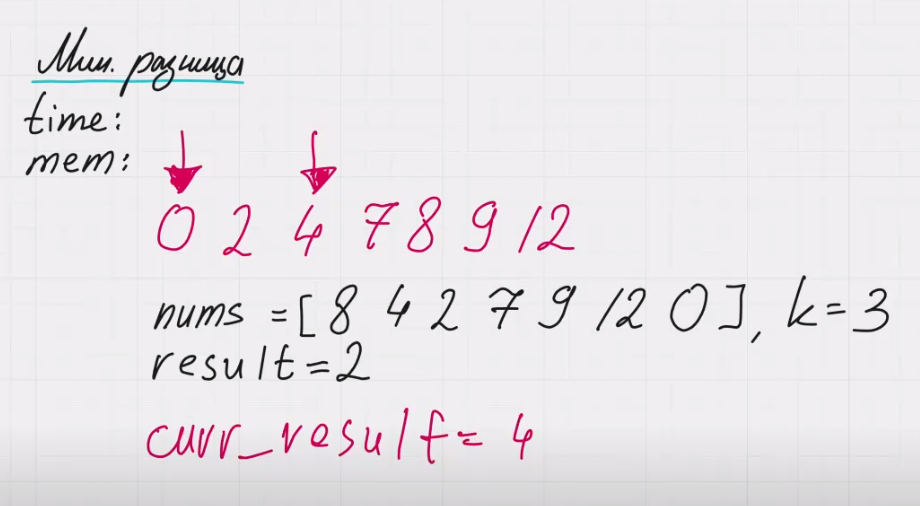 Мин. разница
time:
mem:
0 2 4 7 8 9 12
nums = [8 4 2 7 9 12 0], k=3
result=2
curr_result= 4